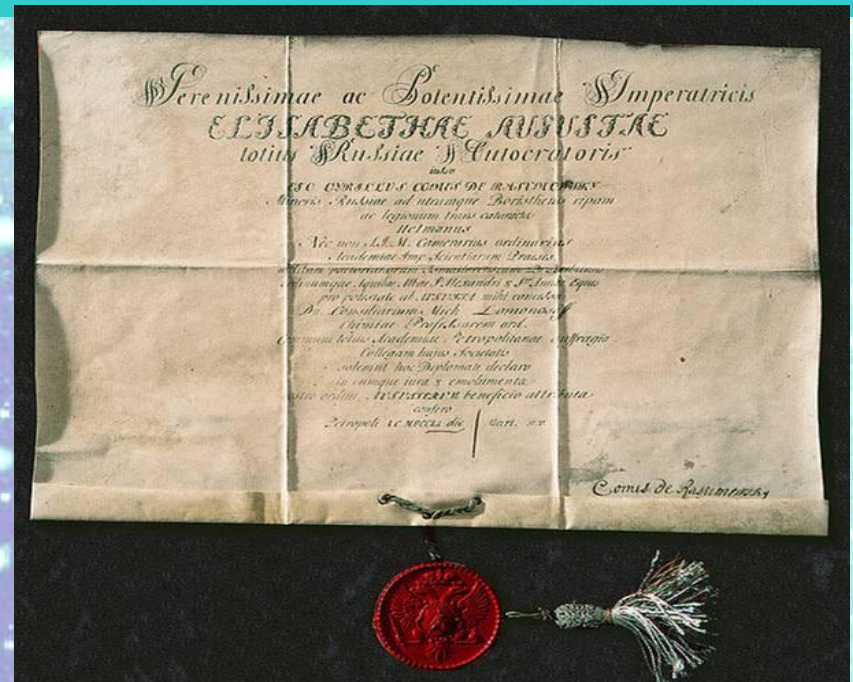 Serenissimae ac Potentissimae Imperatricis
ELISABETHAE AUGUSTAE
totius Russiae Autocratoris
iussu
CYRILLUS COMES DE RASUMOWSKY
Minoris Russiae ad utramque Boristhenis ripam
ac legionum trans cataracta
Hetmanus
Nec non S.I.M. Camerarius ordinarius
Academiae Imp. Scientiarum Praeses
Aquilae Albae S. Alexandri & St. Annae Eques
pro potestate ab AUGUSTA mihi concessa
Dn. Consiliarium Mich. Lomonosoff
Chimiae Professorem ord.
totius Academiae Petropolitanae suffragio
Collegam hujus Societatis
solemni hoc Diplomate declaro
in eumque iura & emolumenta
ordini AUGUSTAE beneficio attributa
confero
Petropoli die
Comes de Rasumowsky